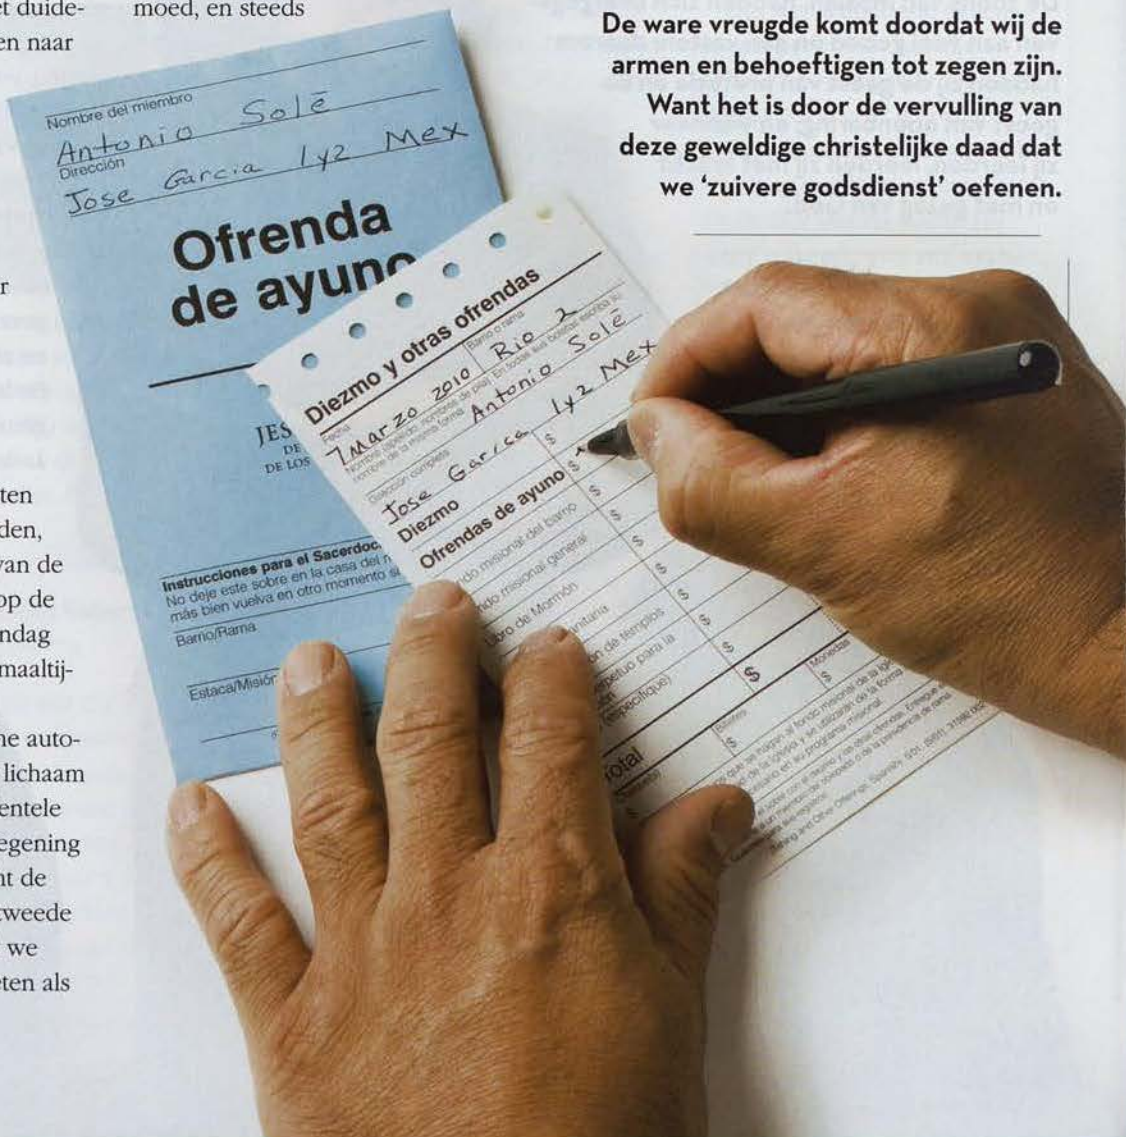 et duide-
en naar
moed, en steeds
r
ten
den,
van de
op de
ndag
maaltij-
ne auto-
lichaam
entele
egening
nt de
tweede
we
eten als
De ware vreugde komt doordat wij de
armen en behoeftigen tot zegen zijn.
Want het is door de vervulling van
deze geweldige christelijke daad dat
we ‘zuivere godsdienst’ oefenen.
Nombre del miembro
Antonio Solē
Dirección
Jose Garcia 1y2 Mex
Ofrenda
de ayuno
JES
DE
DE LOS
Instrucciones para el Sacerdoc
No deje este sobre en la casa del
más bien vuelva en otro momento
Barrio/Rama
Estaca/Misión
Diezmo y otras ofrendas
Fecha
Barrio o rama
7 Marzo 2010 Rio 2
nombre de la misma forma
Antonio Solē
Dirección completa
Jose Garica 1y2 Mex
Diezmo $
Ofrendas de ayuno $
do misional del barrio $
ndo misional general $
ibro de Mormón $
nitaria $
ón de templos $
petuo para la $
(especifique) $
Total $
Billetes $
Monedas $